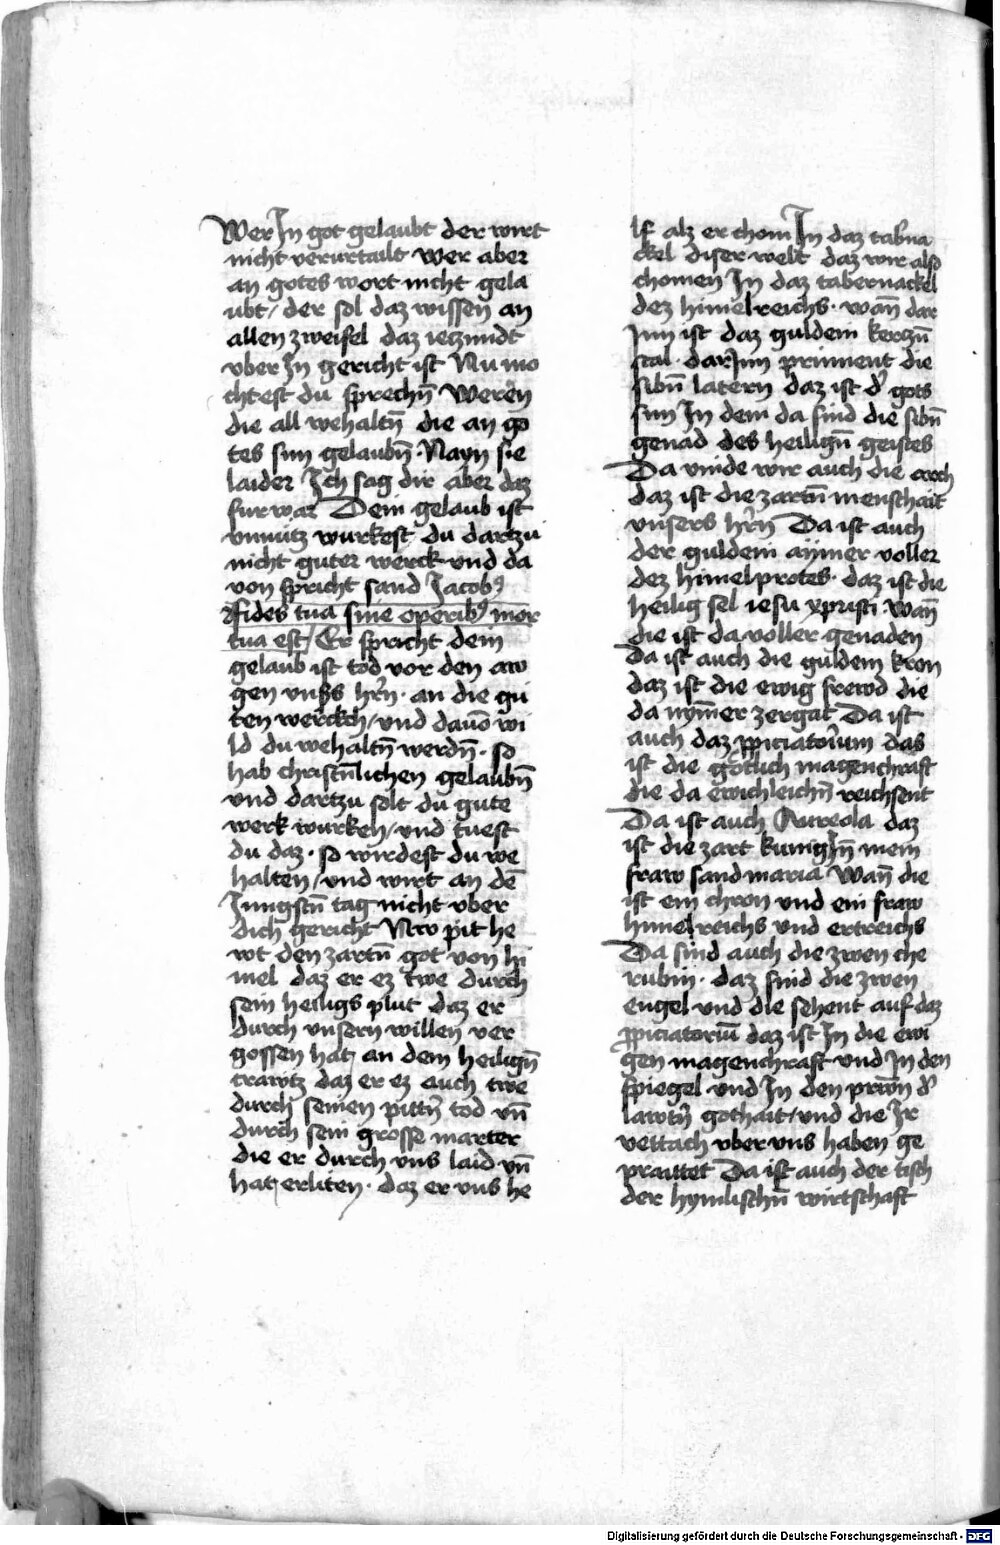 Wer In got gelaubt der wirt
nicht verurtailt wer aber
an gotes wort nicht gela
ubt / der sol daz wissen an
allen zweifel daz ieczundt
vber In gericht ist Nu mo
chtest du sprechn̄ Weren
die all wehaltn̄ die an go
tes sun gelaubn̄ · Nayn sie
laider Ich sag dir aber daz
fur war Dein gelaub ist
vnnücz wurkest du dartzu
nicht guter werck vnd da
von spricht sand Jacobꝰ
Fides tua sine operibꝰ mor
tua est / Er spricht dein
gelaub ist tod vor den aw
gen vnsʒs hr̄n · an die gu
ten werckch / vnd dauō wi
ld du wehaltn̄ werdn̄ · so
hab christn̄lichen gelaubn̄
vnd dartzu solt du gute
werk wurken / vnd tuest
du daz · so wirdest du we
halten / vnd wirt an dē
Jungstn̄ tag nicht vber
dich gericht Nw pit he
wt den zartn̄ got von hi
mel daz er ez twe durch
sein heiligs plut daz er
durch vnsern willen ver
gossen hat / an dem heilign̄
crawtz daz er ez auch twe
durch seinen pittn̄ tod vn̄
durch sein grosse marter
die er durch vns laid vn̄
hat erliten · daz er vns he
lf alz er chom In daz tab̄na
ckel diser welt daz wir also
chomen In daz tabernackel
dez himelreichs · wan̄ dar
Jnn ist daz guldein kerczn̄
stal · dar Jnn prinnent die
sibn̄ latern daz ist d̄ gots
sun In dem da sind die sibn̄
genad des heilign̄ geistes
Da vinde wir auch die arch
daz ist die zartn̄ menschait
vnsers hr̄n Da ist auch
der guldein aymer voller
dez himelprotes · daz ist die
heilig sel iesu xpristi · wan̄
die ist da voller genaden
Da ist auch die guldein kron
daz ist die ewig frewd die
da nym̄er zergat Da ist
auch daz ꝓpiciatorium das
ist die gotlich magenchraft
die da ewichleichn̄ reichsent
Da ist auch Aureola daz
ist die zart kunigIn̄ mein
fraw sand maria Wan̄ die
ist ein chron vnd ein fraw
himelreichs vnd ertreichs
Da sind auch die zwen che
rubin · daz sind die zwen
engel vnd die sehent auf daz
ꝓpiciatoriū daz ist In die ewi
gen magenchraft vnd In den
spiegel vnd In den prun̄ d̄
lawtn̄ gothait / vnd die Ir
vettach vber vns haben ge
praittet Da ist auch der tisch
der hymlischn̄ wirtschaft
Digitalisierung gefördert durch die Deutsche Forschungsgemeinschaft - DFG